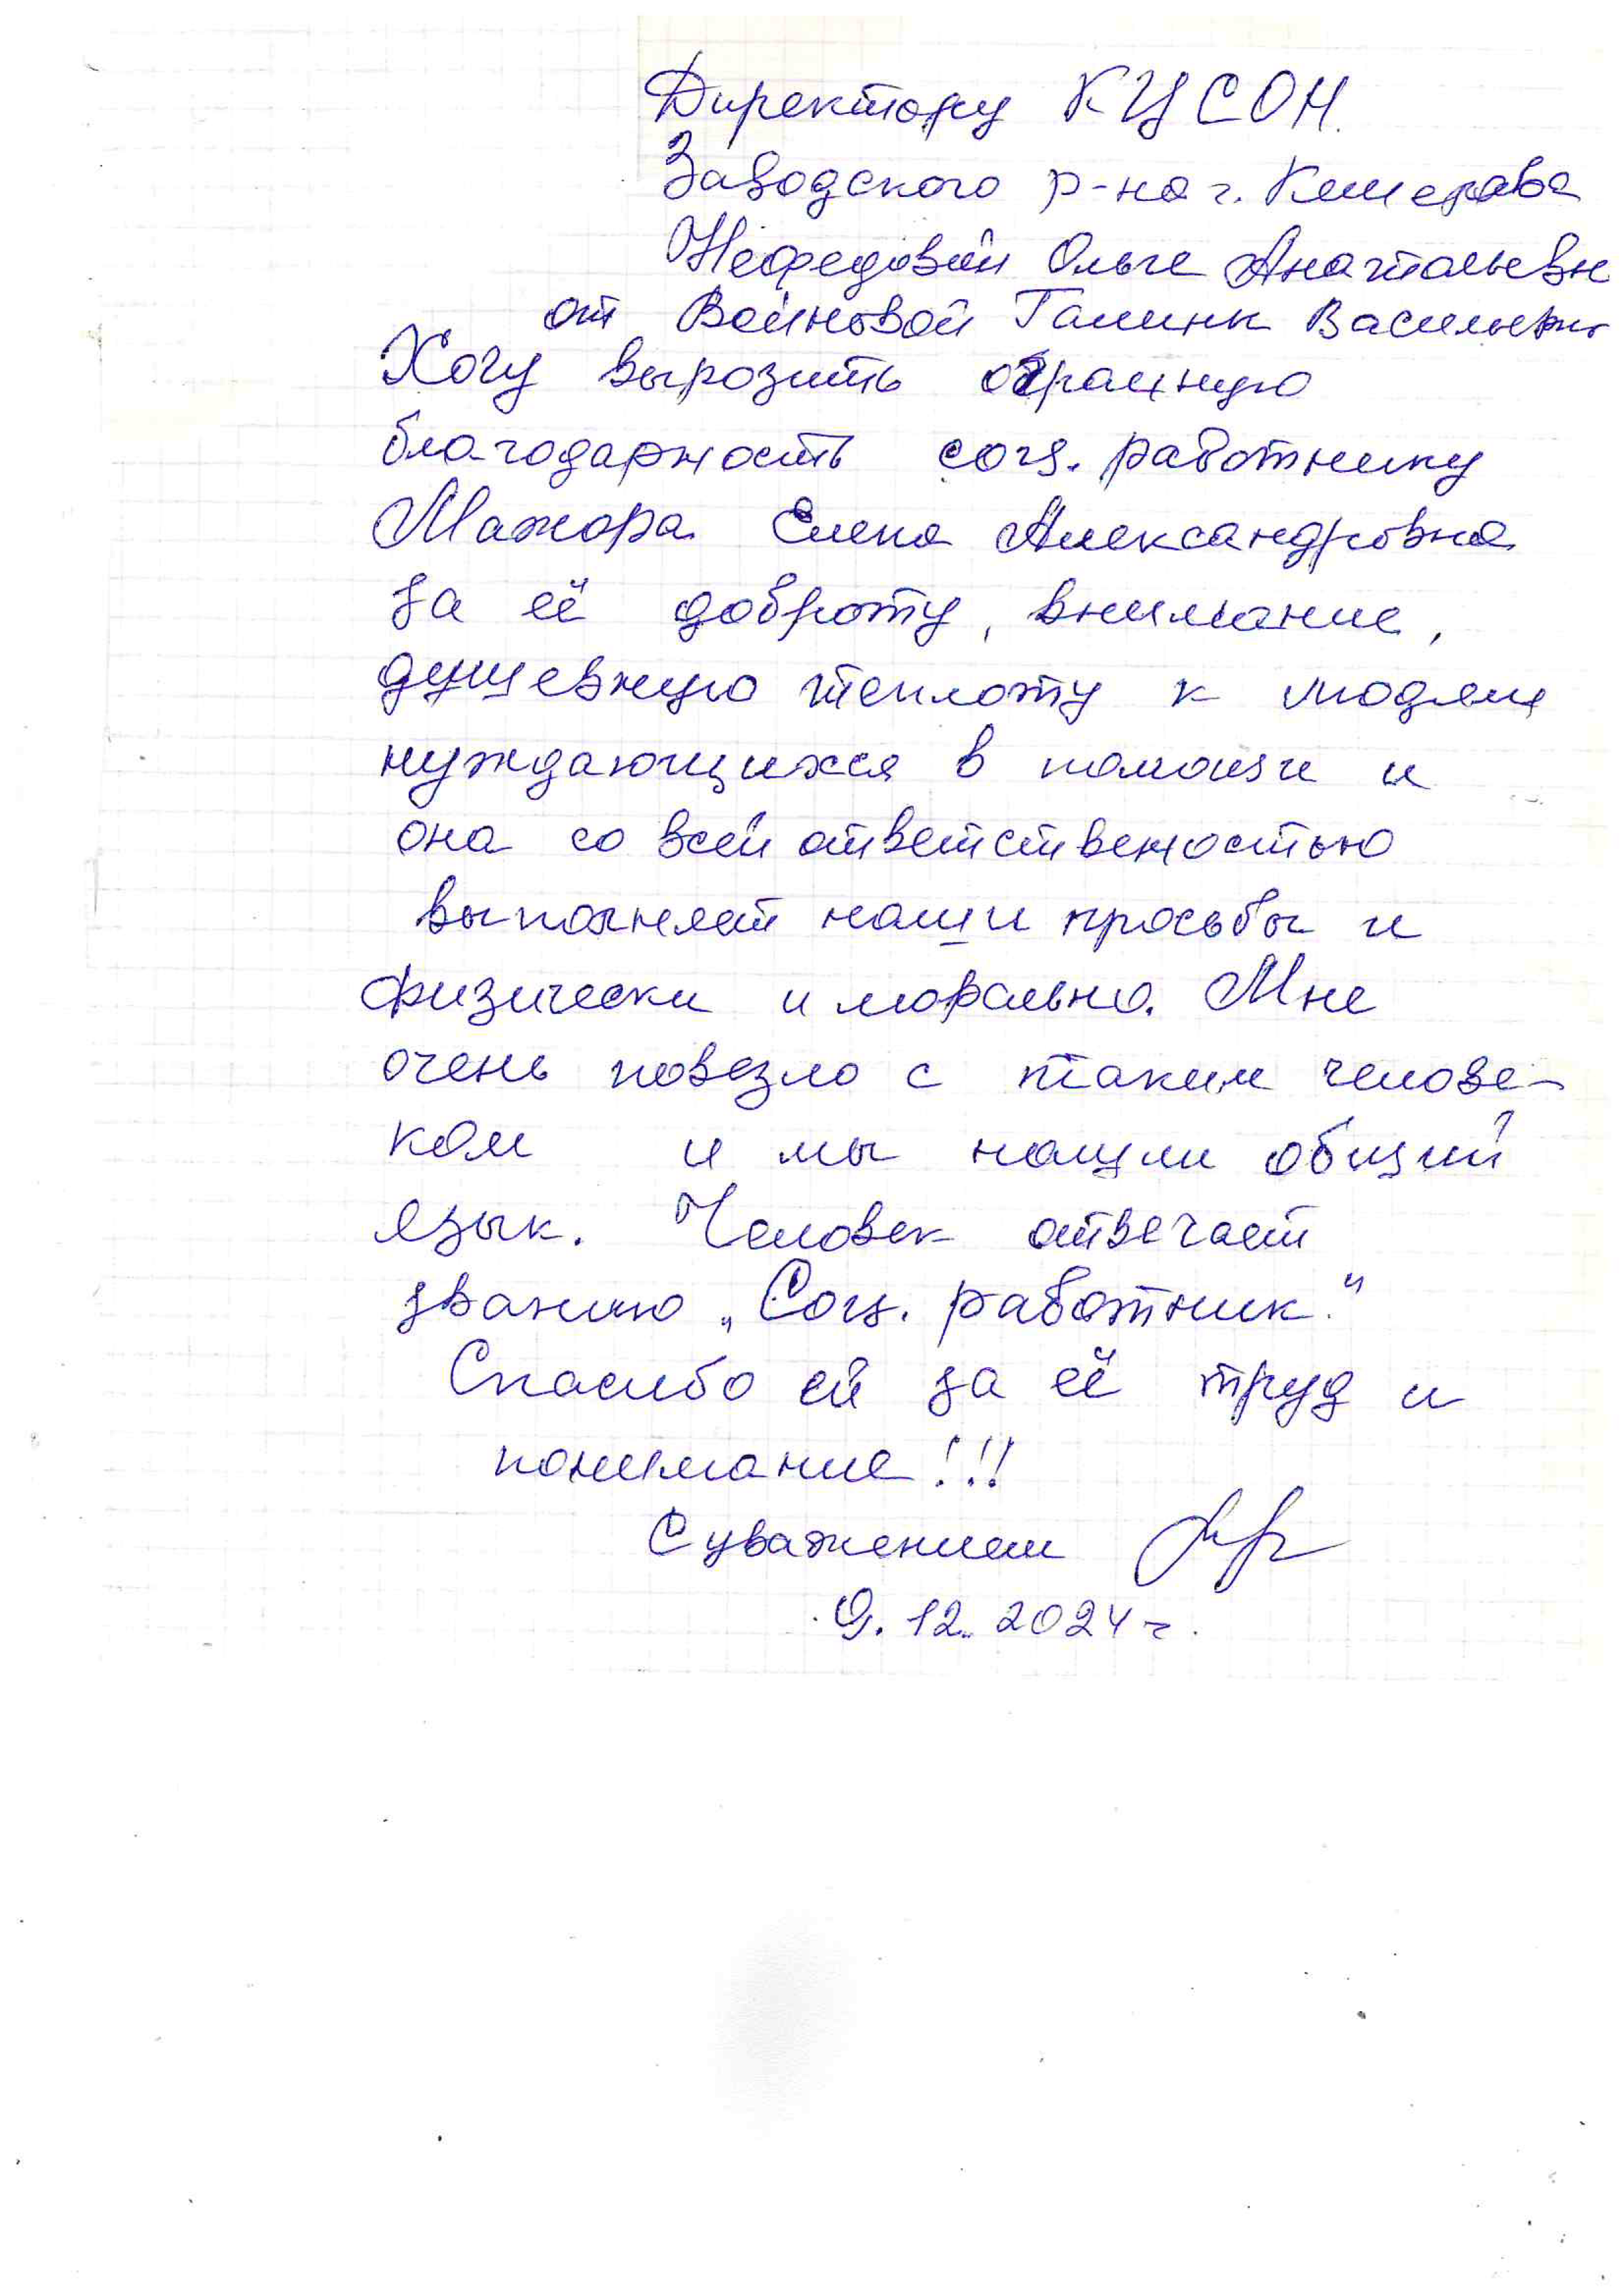 Директору КЦСОН
Заводского р-на г. Кемерова
Нефедовой Ольге Анатольевн
от Войновой Галины Васильевны
Хочу вырозить
благодарность соц. работнику
Мажора Елена Александровна
за её доброту, внимание,
душевную теплоту к людям
нуждающихся в помощи и
она со всей ответственостью
выполняет наши просьбы и
физически и морально. Мне
очень повезло с таким челове-
ком и мы нашли общий
язык. Человек отвечает
званию „Соц. работник."
Спасибо ей за её труд и
понимание!!!
С уважением
9.12.2024г.